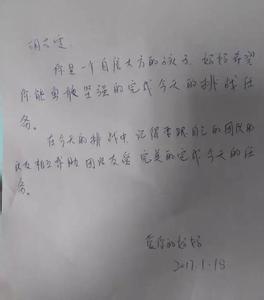 你是一个自信大方的孩子,妈妈希望
你能勇敢坚强的完成今天的挑战任
务。
在今天的挑战中 记得要跟自己的团队的
队友相互帮助 团结友爱 完美的完成今天的任
务。
爱你的妈妈
2017.1.18